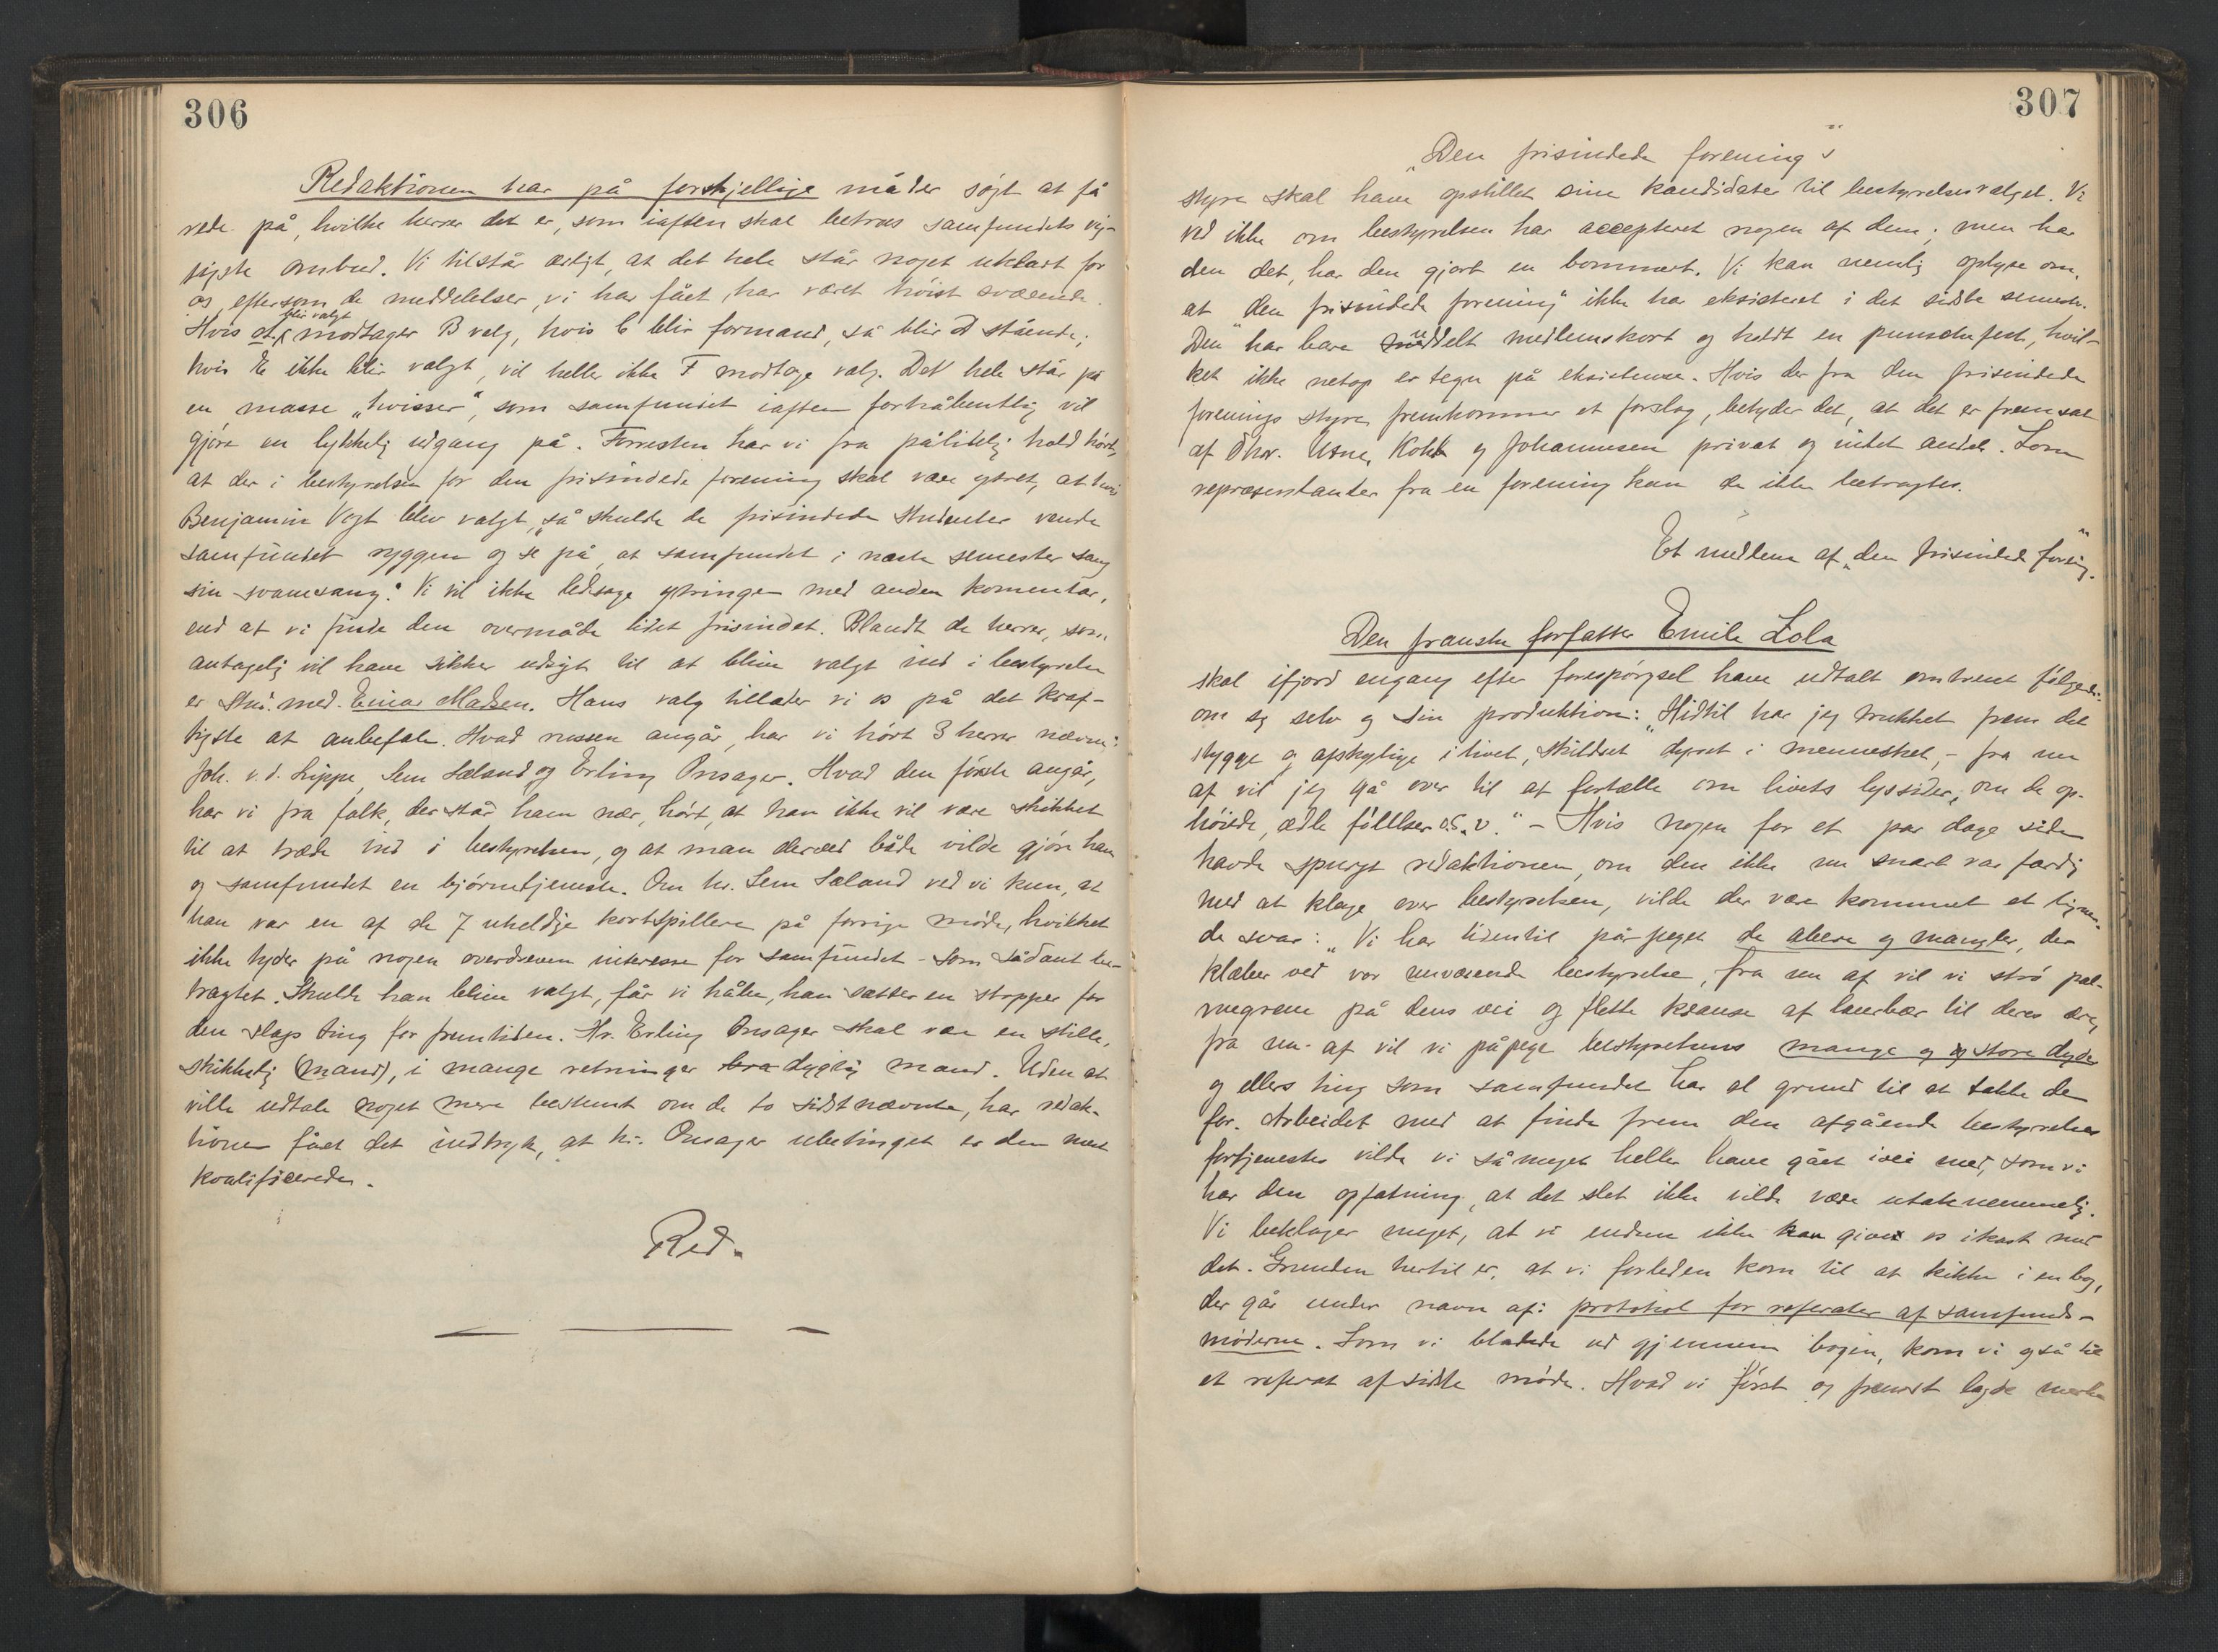 306
Redaktionen har på forskjellige måder søgt at få
rede på, hvilke herrer det er, som iaften skal betroes samfundets vig-
tigste ombud. Vi tilstår ærligt, at det hele står noget uklart for
os, eftersom de meddelelser, vi har fået, har været høist svævende.
blir valgt
Hvis A. modtager B valg, hvis C blir formand, så blir D stående;
hvis E ikke blir valgt, vil heller ikke F modtage valg. Det hele står på
en masse „hvisser“, som samfundet iaften forhåbentlig vil
gjøre en lykkelig udgang på. Forresten har vi fra pålitelig hold hørt,
at der i bestyrelsen for den frisindede forening skal være ytret, at hvis
Benjamin Vogt blev valgt, „så skulde de frisindede studenter vende
samfundet ryggen og se på, at samfundet i næste semester sang
sin svanesang“. Vi vil ikke ledsage ytringen med anden komentar,
end at vi finde den overmåde lidet frisindet. Blandt de herrer, som
antagelig vil have sikker udsigt til at blive valgt ind i bestyrelsen
er stud. med. Einar Madsen. Hans valg tillader vi os på det kraf-
tigste at anbefale. Hvad russen angår, har vi hørt 3 herrer nævne:
Joh. v. d. Lippe, Sem Sæland og Erling Onsager. Hvad den første angår,
har vi fra folk, der står ham nær, hørt, at han ikke vil være skikket
til at træde ind i bestyrelsen, og at man derved både vilde gjøre ham
og samfundet en bjørnetjeneste. Om hr. Sem Sæland ved vi kun, at
han var en af de 7 uheldige kortspillere på forrige møde, hvilket
ikke tyder på nogen overdreven interesse for samfundet – som sådant be-
tragtet. Skulde han blive valgt, får vi håbe, han sætter en stopper for
den slags ting for fremtiden. Hr. Erling Onsager skal være en stille,
skikkelig (mand), i mange retninger bra dygtig mand. Uden at
ville udtale noget mere bestemt om de to sidstnævnte, har redak-
tionen fået det indtryk, at hr. Onsager ubetinget er den mest
kvalificerede.
Red.
307
„Den frisindede forening“s
styre skal have opstillet sine kandidater til bestyrelsesvalget. Vi
ved ikke om bestyrelsen har accepteret nogen af dem; men har
den det, har den gjort en bommert. Vi kan nemlig oplyse om,
at „den frisindede forening“ ikke har eksisteret i det sidste semester.
Den har bare uddelt medlemskort og holdt en punschefest, hvil-
ket ikke netop er tegn på eksistense. Hvis der fra den frisindede
forenings styre fremkommer et forslag, betyder det, at det er fremsat
af Thor. Usne, Kokk og Johannesen privat og intet andet. Som
repræsentanter fra en forening kan de ikke betragtes.
Et medlem af „den frisinded foreng.“
Den franske forfatter Emile Zola
skal ifjord engang efter forespørgsel have udtalt omtrent følgende
om sig selv og sin produktion: „Hidtil har jeg trukket frem det
stygge og afskylige i livet, skildret dyret i mennesket, – fra nu
af vil jeg gå over til at fortælle om livets lyssider, om de op-
høiede, ædle følelser o.s.v.“ – Hvis nogen for et par dage siden
havde spurgt redaktionen, om den ikke nu snart var færdig
med at klage over bestyrelsen, vilde der være kommet et lignen-
de svar: „Vi har tidentil påpeget de abere og mangler, der
klæber ved vor nuværende bestyrelse, fra nu af vil vi strø pal-
megrene på dens vei og flette kranse af laurbær til deres ære,
fra nu af vil vi påpege bestyrelsens mange og store dyder
og ellers ting som samfundet har al grund til at takke den
for. Arbeidet med at finde frem den afgående bestyrelses
fortjenester vilde vi så meget heller have gået ivei med, som vi
har den opfatning, at det slet ikke vilde være utaknemmelig.
Vi beklager meget, at vi endnu ikke kan give os ikast med
det. Grunden hertil er, at vi forleden kom til at kikke i en bog,
der går under navn af: protokol for referater af samfunds-
møderne. Som vi bladede ud gjennem bogen, kom vi også til
et referat af sidste møde. Hvad vi først og fremst lagde merke